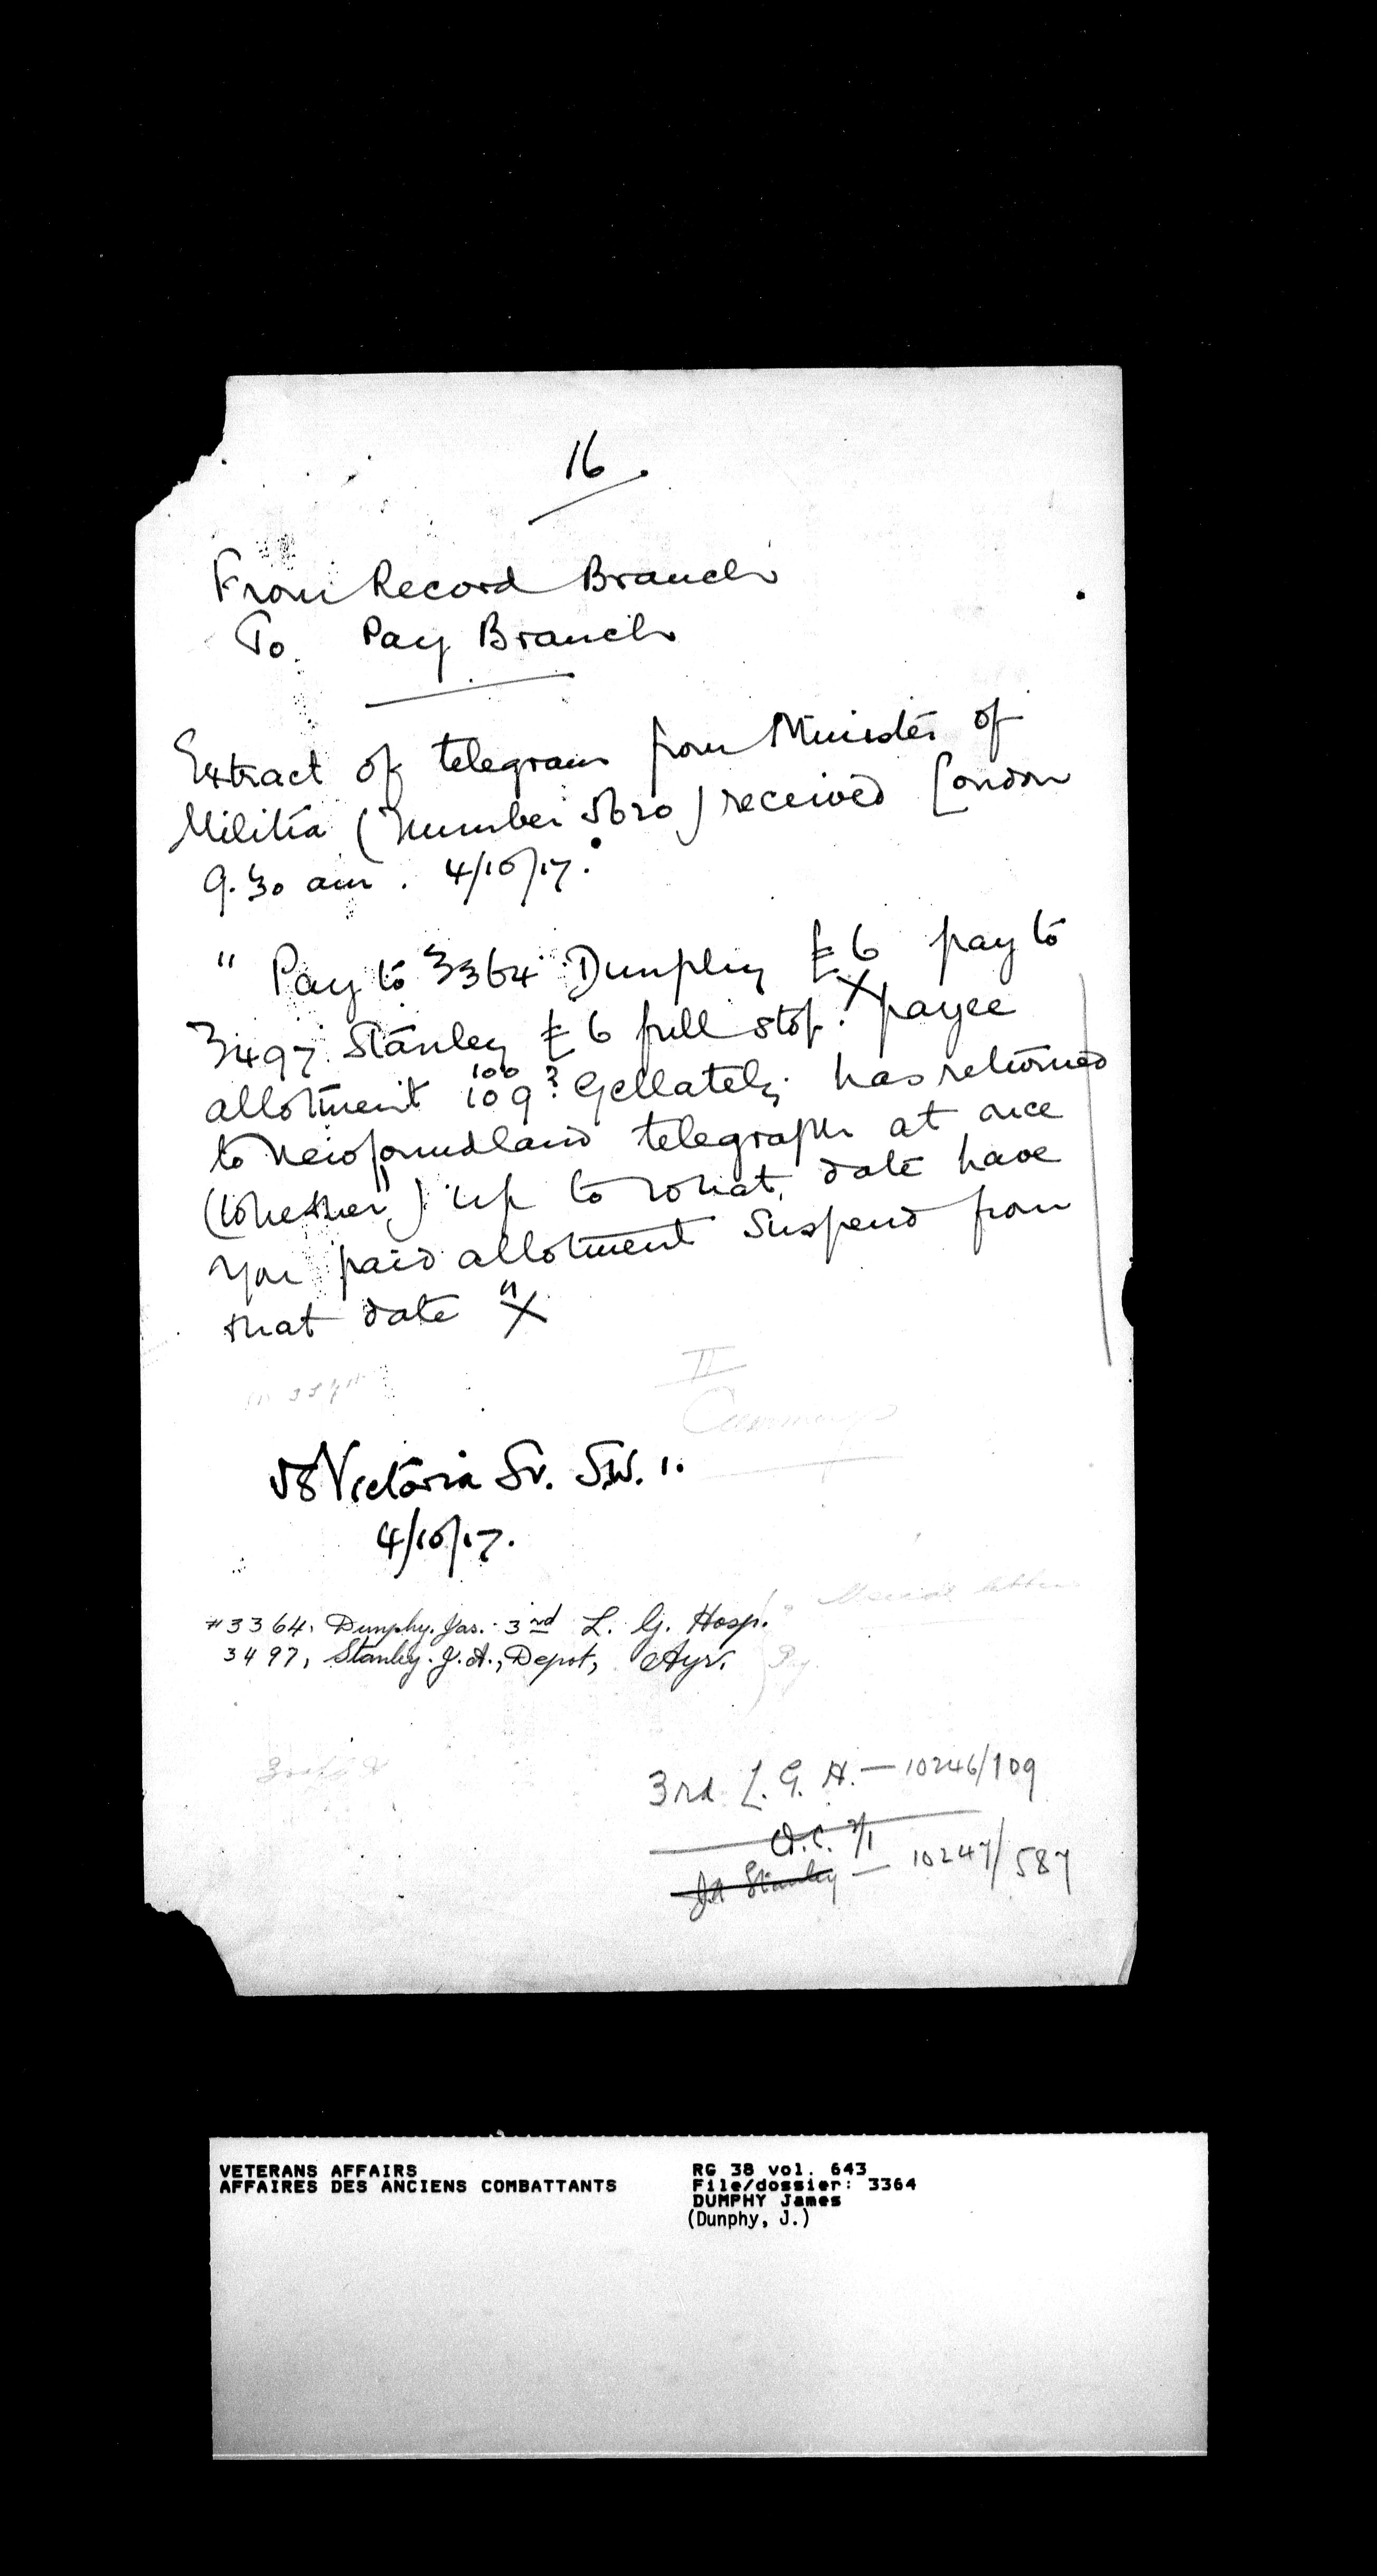 16.
From Record Branch
To Pay Branch
Extract of telegram from Minister of
Militia (number 5620) received London
9.30 am. 4/10/17.
" Pay to 3364 Dunphy £6 pay to
3497 Stanley £6 full stop. X payee
allotment 109? 100 Gellately has returned
to Newfoundland telegraph at once
(whether") up to what date have
you paid allotment suspend from
that date " X
II
58 Victoria St. S.W. 1.
4/10/17.
#3364, Dunphy. Jas. 3rd L. G. Hosp.
3497, Stanley. J. A., Depot, Ayr.
Pay.
3rd L. G. H. — 10246/109
O.C. 2/1
JA Stanley — 10247/587
VETERANS AFFAIRS
AFFAIRES DES ANCIENS COMBATTANTS
RG 38 vol. 643
File/dossier: 3364
DUMPHY James
(Dunphy, J.)